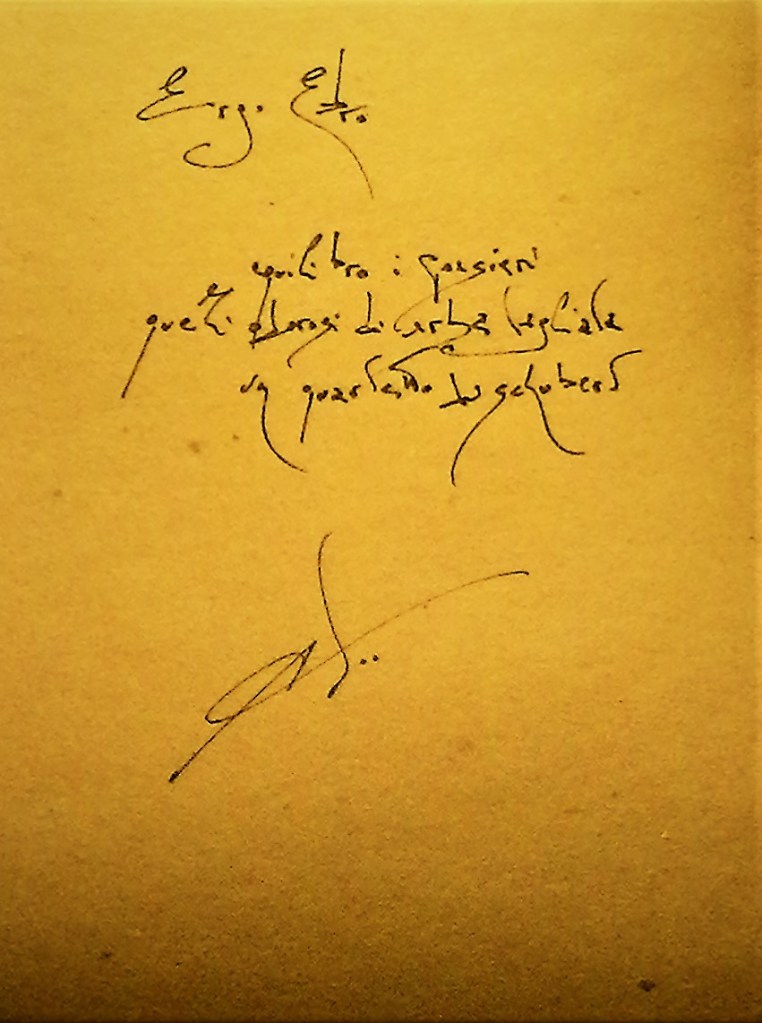 Ergo Ebro
equilibro i pensieri
quelli odorosi di erba tagliata
un quartetto di schubert